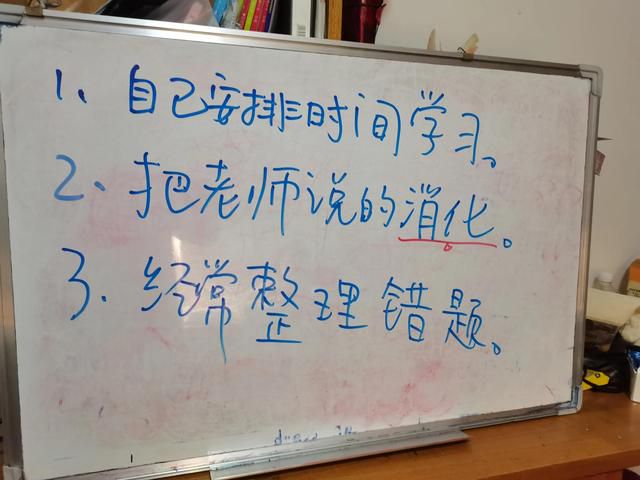 1、自己安排时间学习。
2、把老师说的消化。
3.经常整理错题。